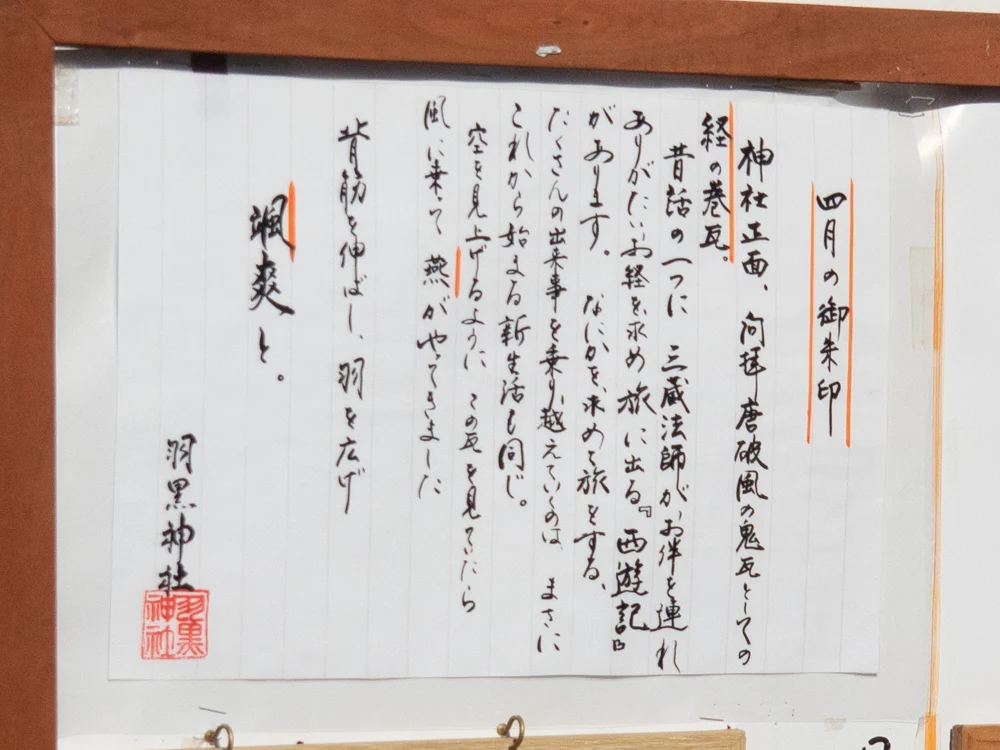 四月の御朱印
神社正面、向拝唐破風の鬼瓦としての
経の巻瓦。
昔話の一つに 三蔵法師が、お伴を連れ
ありがたいお経を求め 旅に出る『西遊記』
があります。 なにかを、求めて旅をする、
たくさんの出来事を乗り越えていくのは まさに
これから始まる新生活も同じ。
空を見上げるように この瓦を見ていたら
風に乗って 燕がやってきました
背筋を伸ばし、羽を広げ
颯爽と。
羽黒神社
羽黒
神社